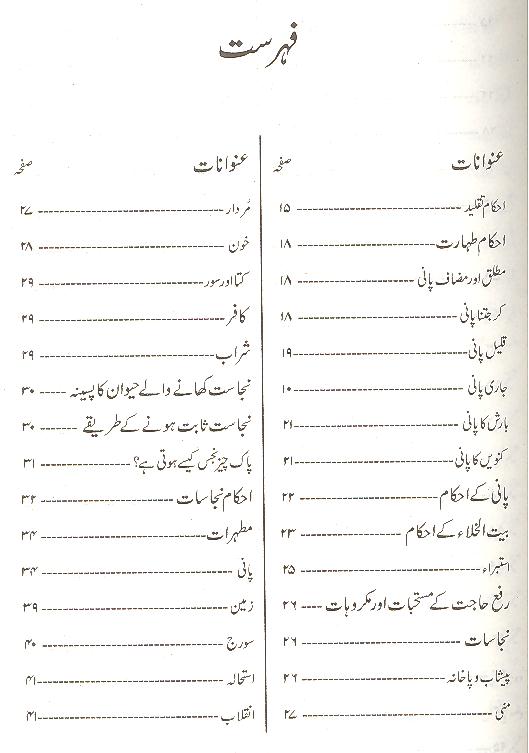 فہرست
عنوانات صفحہ
احکام تقلید ۱۵
احکام طہارت ۱۸
مطلق اور مضاف پانی ۱۸
کر جتنا پانی ۱۸
قلیل پانی ۱۹
جاری پانی ۱۰
بارش کا پانی ۲۱
کنویں کا پانی ۲۱
پانی کے احکام ۲۲
بیت الخلاء کے احکام ۲۳
استبراء ۲۵
رفع حاجت کے مستحبات اور مکروہات ۲۶
نجاسات ۲۶
پیشاب و پاخانہ ۲۶
منی ۲۷
عنوانات صفحہ
مُردار ۲۷
خون ۲۸
کتا اور سور ۲۹
کافر ۲۹
شراب ۲۹
نجاست کھانے والے حیوان کا پسینہ ۳۰
نجاست ثابت ہونے کے طریقے ۳۰
پاک چیز نجس کیسے ہوتی ہے؟ ۳۱
احکام نجاسات ۳۲
مطہرات ۳۴
پانی ۳۴
زمین ۳۹
سورج ۴۰
استحالہ ۴۱
انقلاب ۴۱